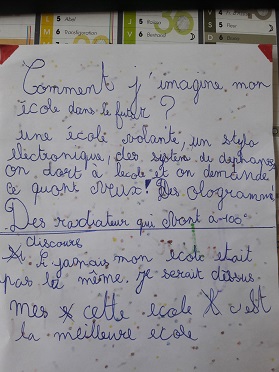 5 Abel
6 Transfiguration
5 Raïssa
6 Bertrand
Comment j'imagine mon
école dans le futur ?
une école volante, un stylo
électronique, des système de
on dort à l'école et on demande
ce quont veux ! Des ologramme
Des radiateur qui vont à +100°
discours
si jamais mon école était
pas la même, je serait déssus
mes cette école c'est
la meilleure école